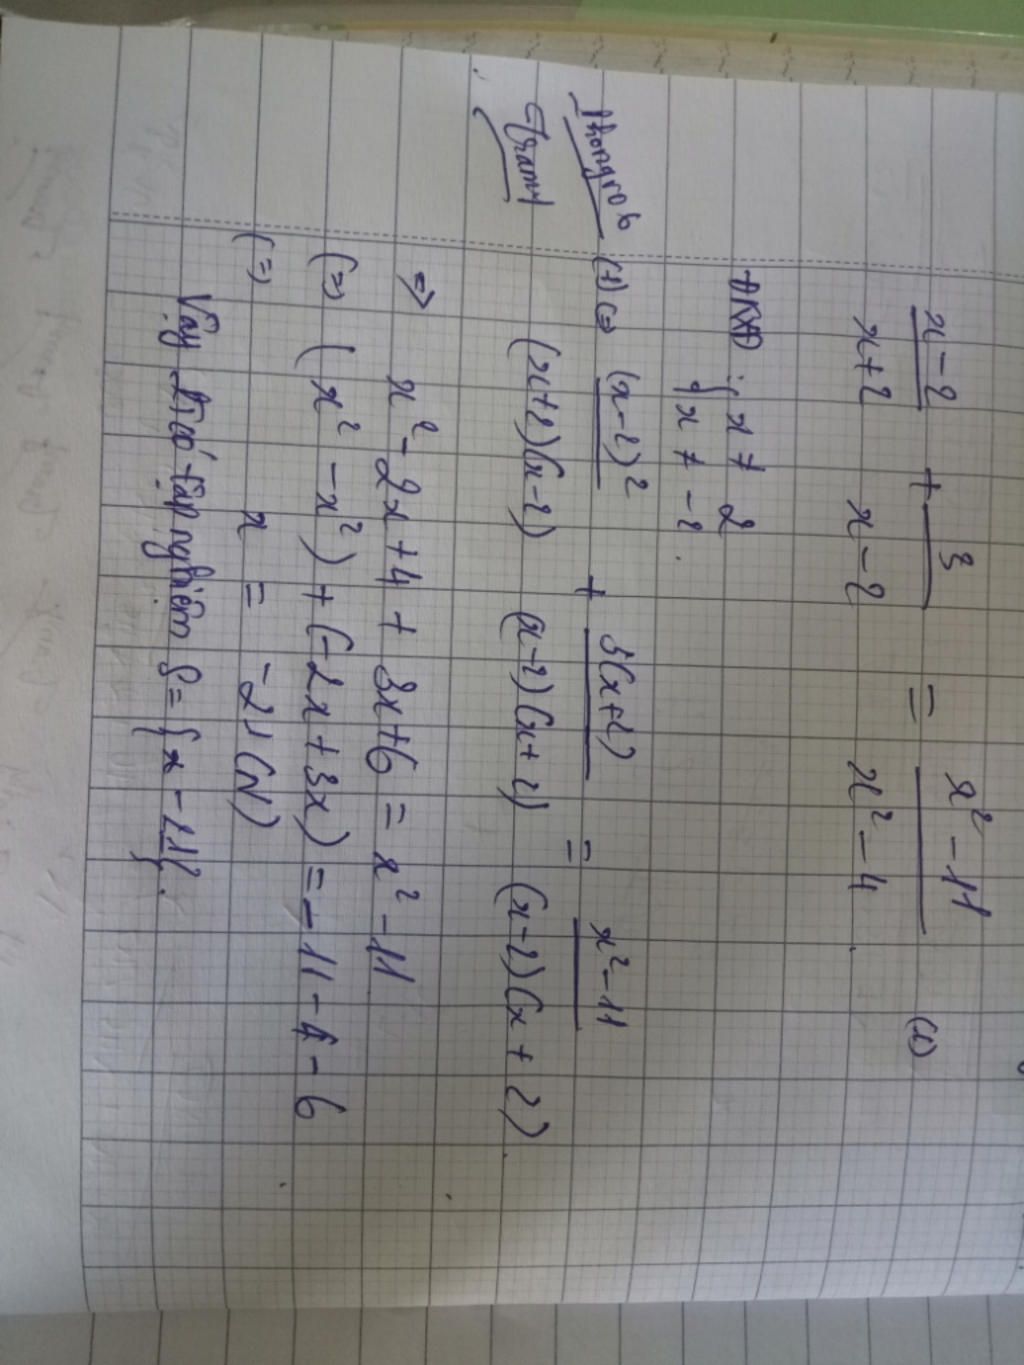 x-2/x+2 + 3/x-2 = x²-11/x²-4 (1)
ĐKXĐ: { x ≠ 2
{ x ≠ -2
(1) <=> (x-2)²/(x+2)(x-2) + 3(x+2)/(x-2)(x+2) = x²-11/(x-2)(x+2)
=> x² - 2x + 4 + 3x + 6 = x² - 11
(=) (x² - x²) + (-2x + 3x) = -11 - 4 - 6
(=) x = -21 (N)
Vậy có tập nghiệm S = { x -21}.